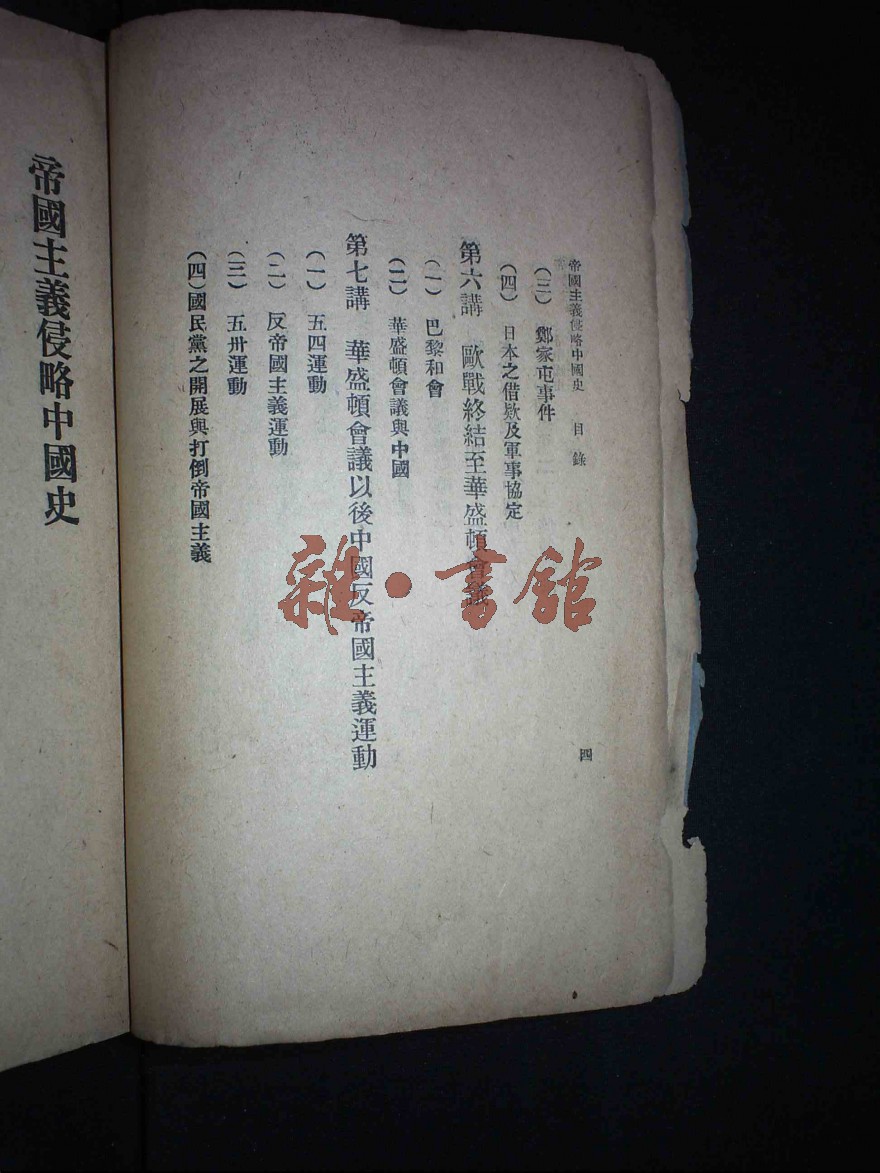 帝國主義侵略中國史 目錄 四
(三) 鄭家屯事件
(四) 日本之借欵及軍事協定
第六講 歐戰終結至華盛頓會議
(一) 巴黎和會
(二) 華盛頓會議與中國
第七講 華盛頓會議以後中國反帝國主義運動
(一) 五四運動
(二) 反帝國主義運動
(三) 五卅運動
(四) 國民黨之開展與打倒帝國主義
帝國主義侵略中國史
雜·書館